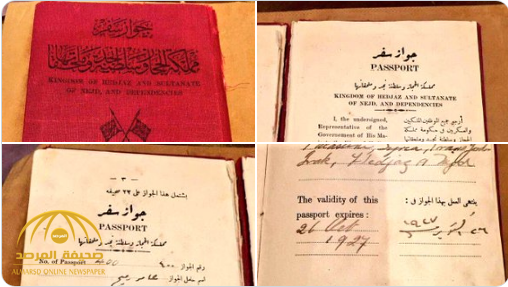 جواز سفر
مملكة الحجاز وسلطنة نجد وملحقاتها
KINGDOM OF HEDJAZ AND SULTANATE
OF NEJD, AND DEPENDENCIES
جواز سفر
PASSPORT
مملكة الحجاز وسلطنة نجد وملحقاتها
KINGDOM OF HEDJAZ AND SULTANATE
OF NEJD, AND DEPENDENCIES
I, the undersigned,
Representative of the
Governement of His Ma-
أرجو جميع الموظفين الملكيين
والعسكريين في حكومة مملكة
الحجاز وسلطنة نجد وملحقاتها
— ٣ —
يشتمل هذا الجواز على ٢٣ صحيفه
جواز سفر
PASSPORT
مملكة الحجاز وسلطنة نجد وملحقاتها
No. of Passport
رقم الجواز
اسم حامل الجواز
Palestine, Syria,
Irak, Hedjaz &
The validity of this
passport expires:
26 Oct
1927
ينتهي العمل بهذا الجواز في :
صحيفة المرصد
ALMARSD ONLINE NEWSPAPER